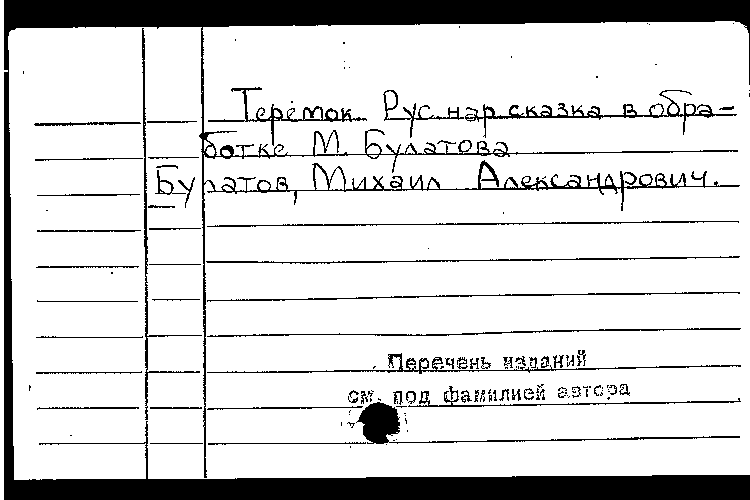 Теремок. Рус. нар. сказка в обра-
ботке М. Булатова.
Булатов, Михаил Александрович.
Перечень изданий
см. под фамилией автора